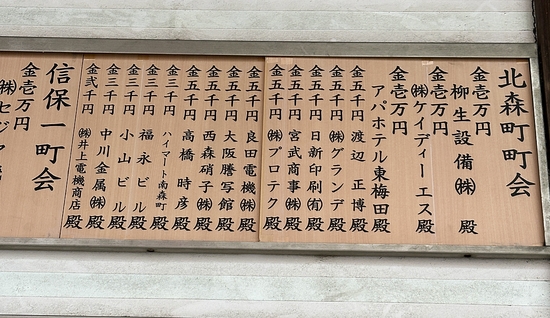 北森町町会
金壱万円 柳生設備㈱ 殿
金壱万円 ㈱ケイディーエス殿
金壱万円 アパホテル東梅田殿
金五千円 渡辺正博殿
金五千円 ㈱グランデ殿
金五千円 日新印刷㈲殿
金五千円 宮武商事㈱殿
金五千円 ㈱プロテク殿
金五千円 良田電機㈱殿
金五千円 大阪謄写館殿
金五千円 西森硝子㈱殿
金五千円 高橋時彦殿
金三千円 ハイマート南森町殿
金三千円 福永ビル殿
金三千円 小山ビル殿
金三千円 中川金属㈱殿
金弐千円 ㈱井上電機商店殿
信保一町会
金壱万円